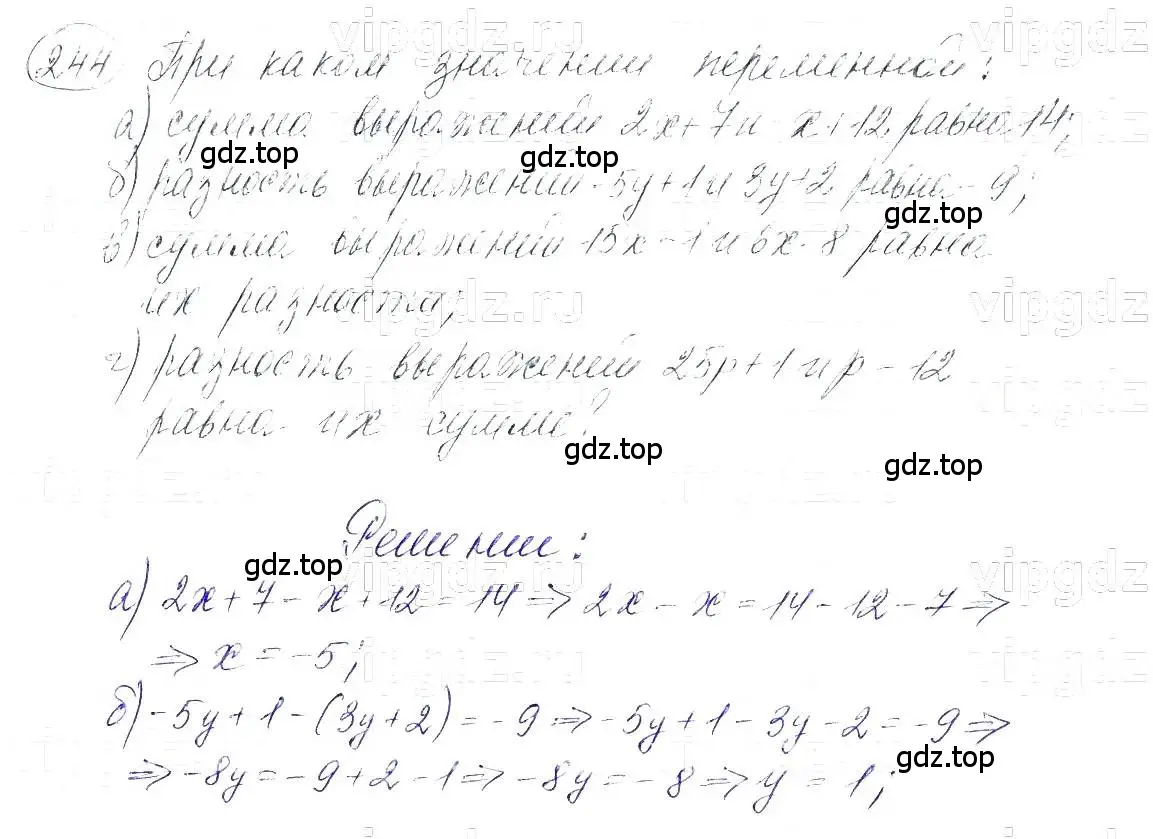 244 При каком значении переменной:
а) сумма выражений 2x+7 и -x+12 равна 14;
gdz.top gdz.top
б) разность выражений -5y+1 и 3y+2 равна -9;
gdz.top
в) сумма выражений 15x-1 и 6x-8 равна
их разности;
г) разность выражений 25p+1 и p-12
равна их сумме?
gdz.top gdz.top
Решении:
gdz.top
а) 2x+7-x+12=14 => 2x-x=14-12-7 =>
=> x=-5;
б) -5y+1-(3y+2)=-9 => -5y+1-3y-2=-9 =>
gdz.top
=> -8y=-9+2-1 => -8y=-8 => y=1;
vipgdz
vipgdz.ru
vipgdz
vipgdz.ru
vipgdz
vipgdz
vipgdz.ru
vipgdz